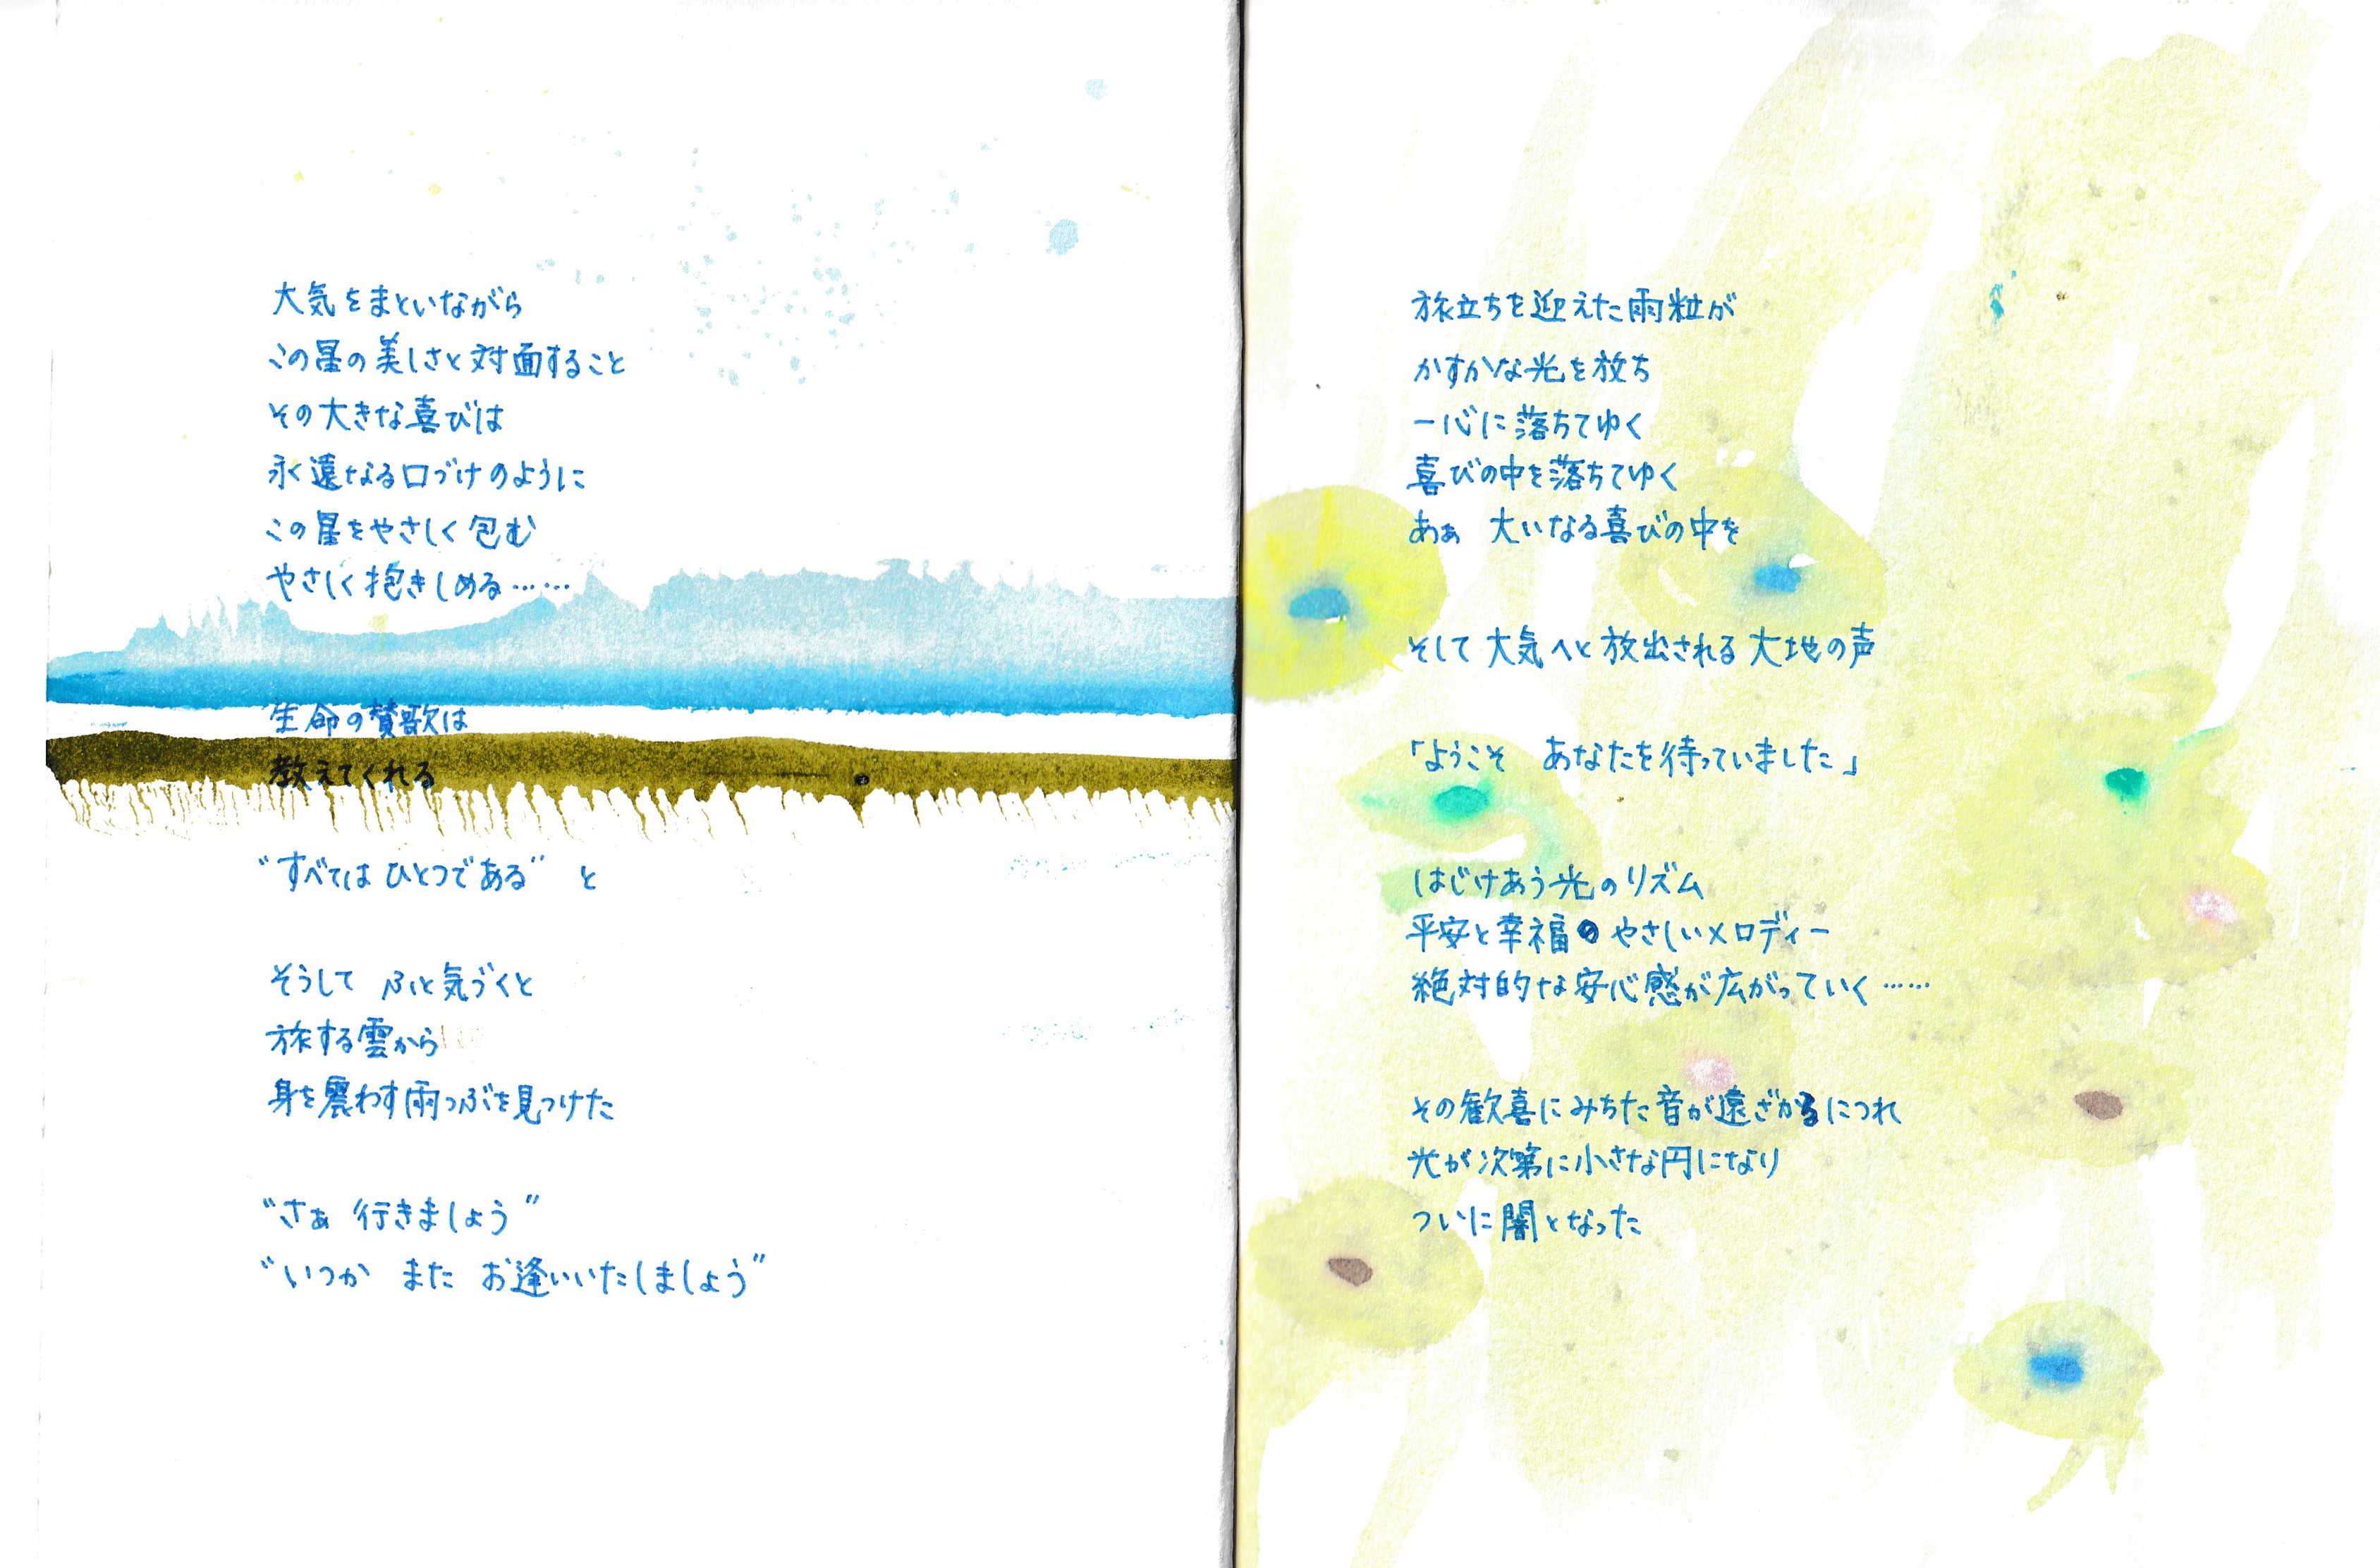 大気をまといながら
この星の美しさと対面すること
その大きな喜びは
永遠なる口づけのように
この星をやさしく包む
やさしく抱きしめる……
生命の賛歌は
教えてくれる
“すべては ひとつである” と
そうして ふと気づくと
旅する雲から
身を震わす雨つぶを見つけた
“さぁ 行きましょう”
“いつか また お逢いいたしましょう”
旅立ちを迎えた雨粒が
かすかな光を放ち
一心に落ちてゆく
喜びの中を落ちてゆく
あぁ 大いなる喜びの中を
そして大気へと放出される大地の声
「ようこそ あなたを待っていました」
はじけあう光のリズム
平安と幸福のやさしいメロディー
絶対的な安心感が広がっていく……
その歓喜にみちた音が遠ざかるにつれ
光が次第に小さな円になり
ついに闇となった